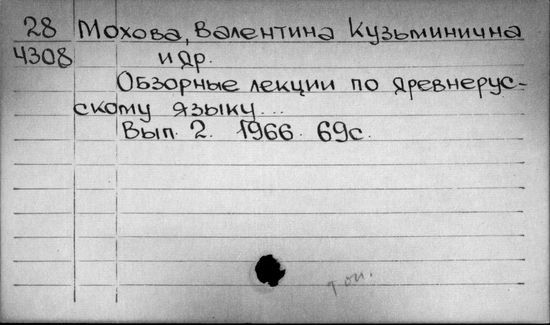 28 Мохова, Валентина Кузьминична
4308 и др.
Обзорные лекции по древнерус-
скому языку...
Вып. 2. 1966. 69с.